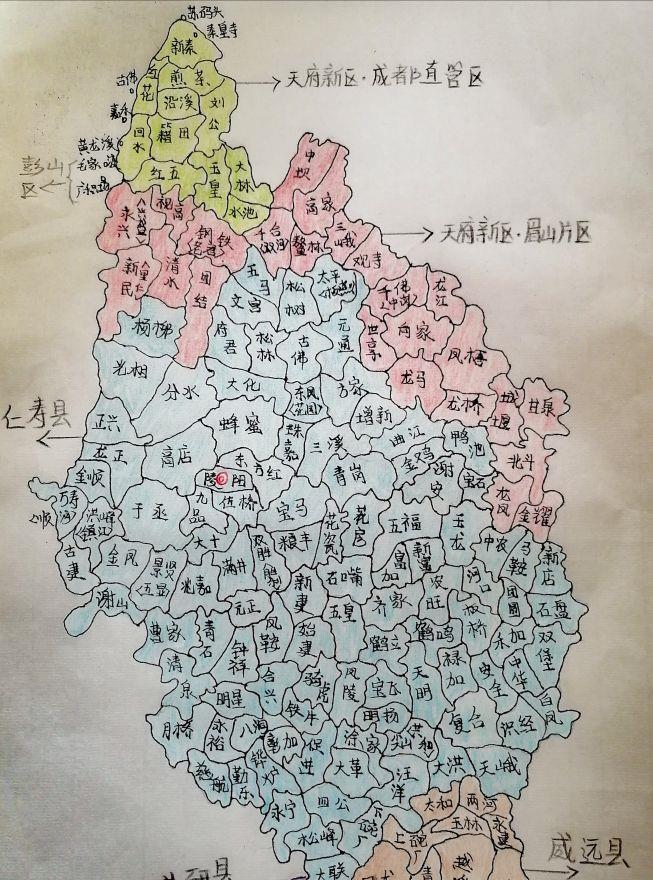 苏码头
秦皇寺
新秦
古佛
煎茶
天府新区·成都直管区
花
沿溪
刘公
嘉禾
回水
籍田
黄龙溪
毛家渡
彭山区
红五
玉皇
大林
水池
中坝
高家
永兴
视高
钢铁
千台
(双河)
鳌林
三峨
天府新区·眉山片区
观寺
新民
清水
团结
五马
松树
太平
龙江
文宫
杨柳
府君
松林
古佛
元通
向家
凤梯
光相
分水
大化
东民
(花园)
方家
龙马
龙桥
甘泉
仁寿县
正兴
蜂蜜
珠嘉
增新
三溪
曲江
鸭池
北斗
龙正
高店
东方红
青岗
金鸡
谢安
宝石
金顺
陵阳
九品
伍桥
宝马
龙凤
金耀
洪峰
(镇江)
于丞
花瓷
五福
玉龙
古建
金凤
景贤
<五显>
大十
兆嘉
满井
双胜
粮丰
富加
中农
马鞍
新店
谢山
元正
新建
石咀嘴
农旺
河口
团圆
石盘
曹家
青石
凤鞍
始建
五皇
齐家
鹤立
鹤鸣
板桥
禾加
双堡
清泉
钟祥
合兴
骑虎
凤陵
宝飞
天明
禄加
安全
中华
白凤
月桥
永裕
明星
八海
铁牛
明扬
复合
识经
慈航
勤乐
彰加
促进
涂家
尖山
洪和
大革
汪洋
大洪
天峨
铧炉
永宁
四公
太和
两河
玉林
永建
松峰
威远县
大联